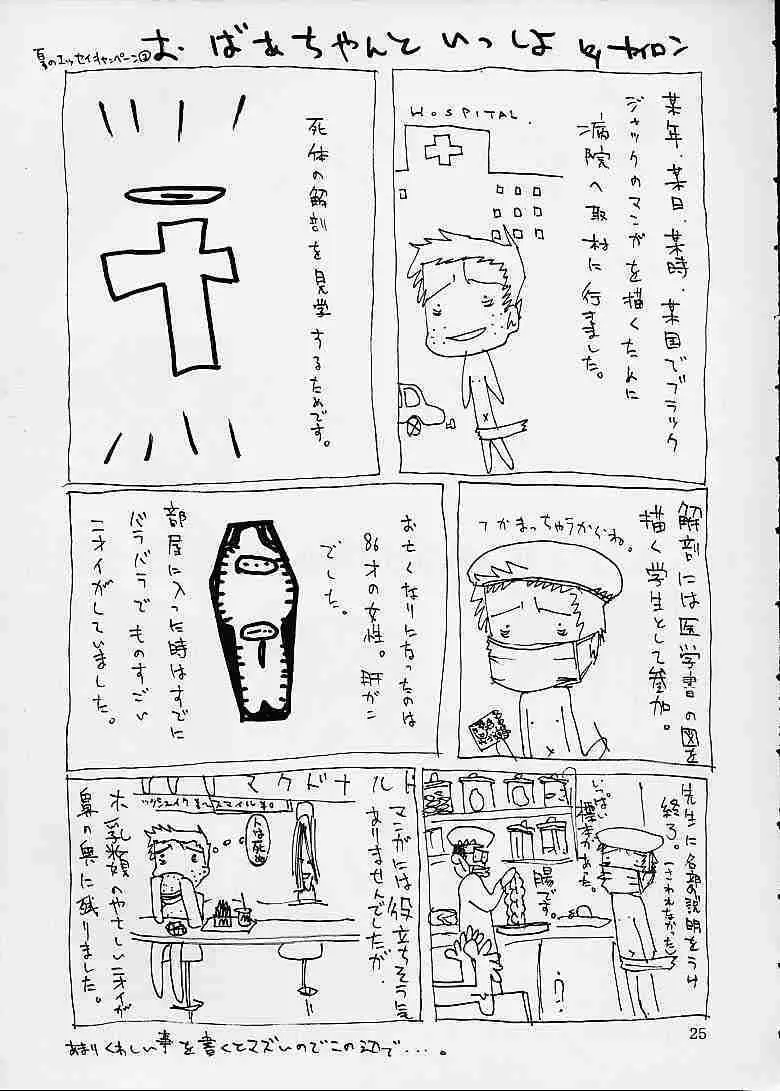 夏のエッセイキャンペーン②
おばあちゃんといっしょ
by ナイロン
某年、某日、某時、某国でブラック
ジャックのマンガを描くために
病院へ取材に行きました。
HOSPITAL.
死体の解剖を見学するためです。
解剖には医学書の図を
描く学生として参加。
つかまっちゃうからね。
お亡くなりになったのは
86才の女性。肝がん
でした。
部屋に入った時はすでに
バラバラでものすごい
ニオイがしていました。
先生に各部の説明をうけ
終了。(さわれなかった)
いっぱい
標本があった。
腸です。
?
マンガには役立ちそうに
ありませんでしたが、
マクドナルド
人は死ぬ
ホ乳類のやさしいニオイが
鼻の奥に残りました。
あまりくわしい事を書くとマズいのでこの辺で・・・。
25